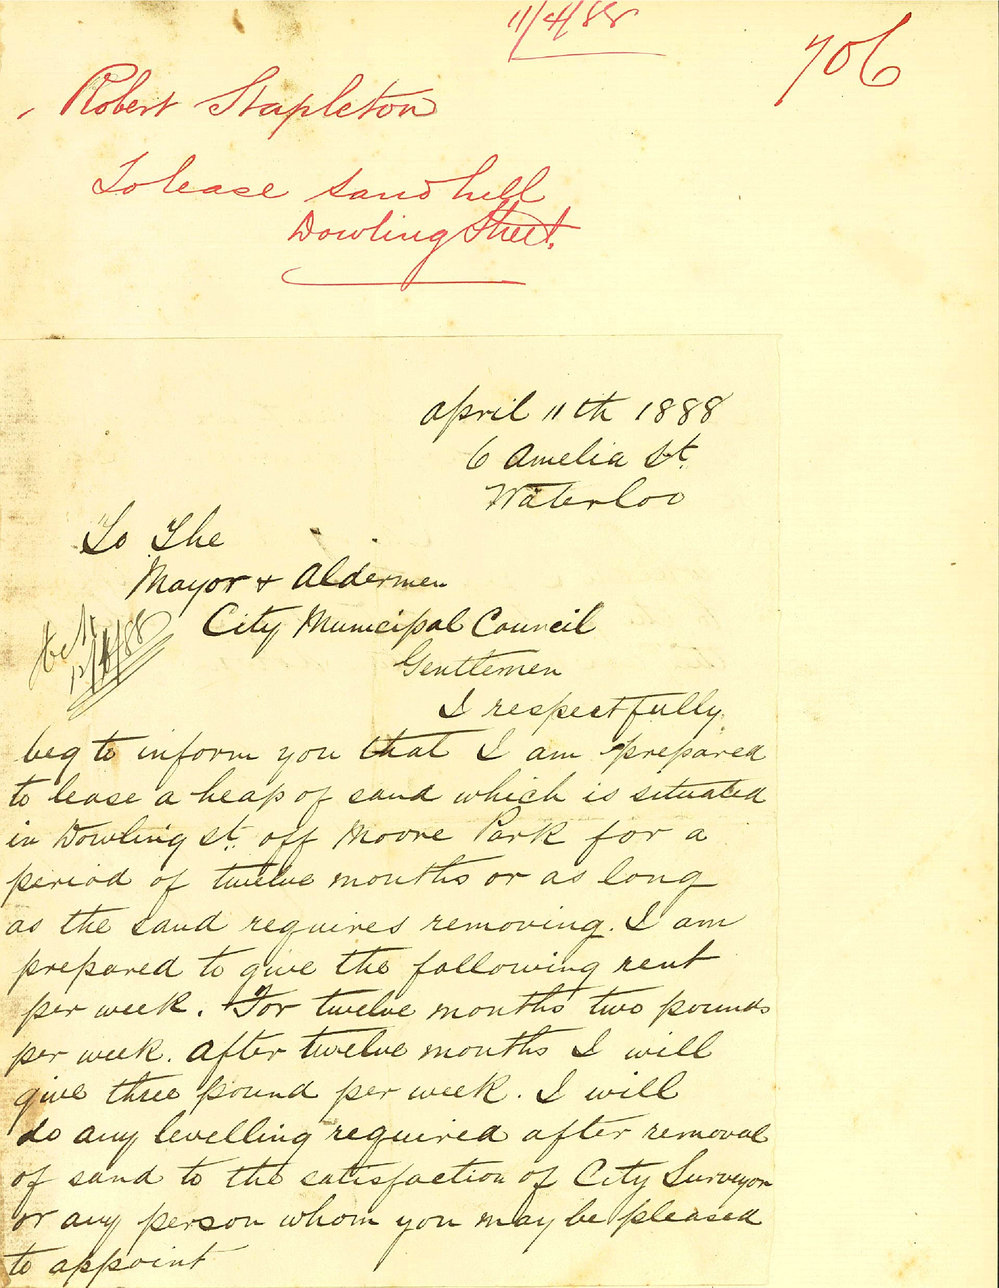 11/4/88
706
Robert Stapleton
To lease sand hill
Dowling Street.
April 11th 1888
6 Amelia St.
Waterloo
To The
Mayor & Aldermen
City Municipal Council
12/4/88
Gentlemen
I respectfully
beg to inform you that I am prepared
to lease a heap of sand which is situated
in Dowling St. off Moore Park for a
period of twelve months or as long
as the sand requires removing. I am
prepared to give the following rent
per week. For twelve months two pounds
per week. After twelve months I will
give three pound per week. I will
do any levelling required after removal
of sand to the satisfaction of City Surveyor
or any person whom you may be pleased
to appoint